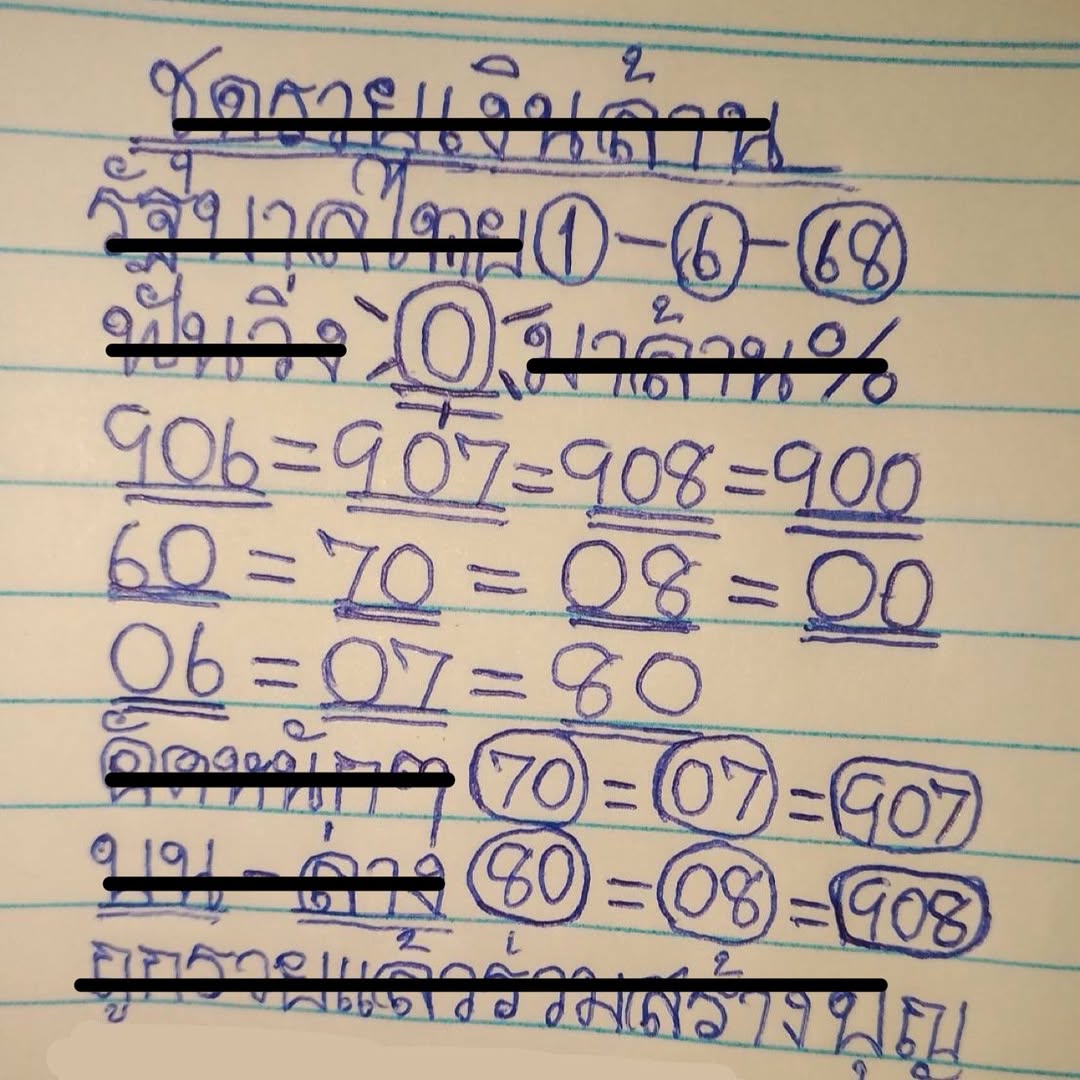 ชุดรวยเงินล้าน
รัฐบาลไทย 1 - 6 - 68
ฟันวิ่ง 0 มาล้าน%
906 = 907 = 908 = 900
60 = 70 = 08 = 00
06 = 07 = 80
จัดหนักๆ 70 = 07 = 907
บน - ล่าง 80 = 08 = 908
ถูกรวยแล้วร่วมสร้างบุญ